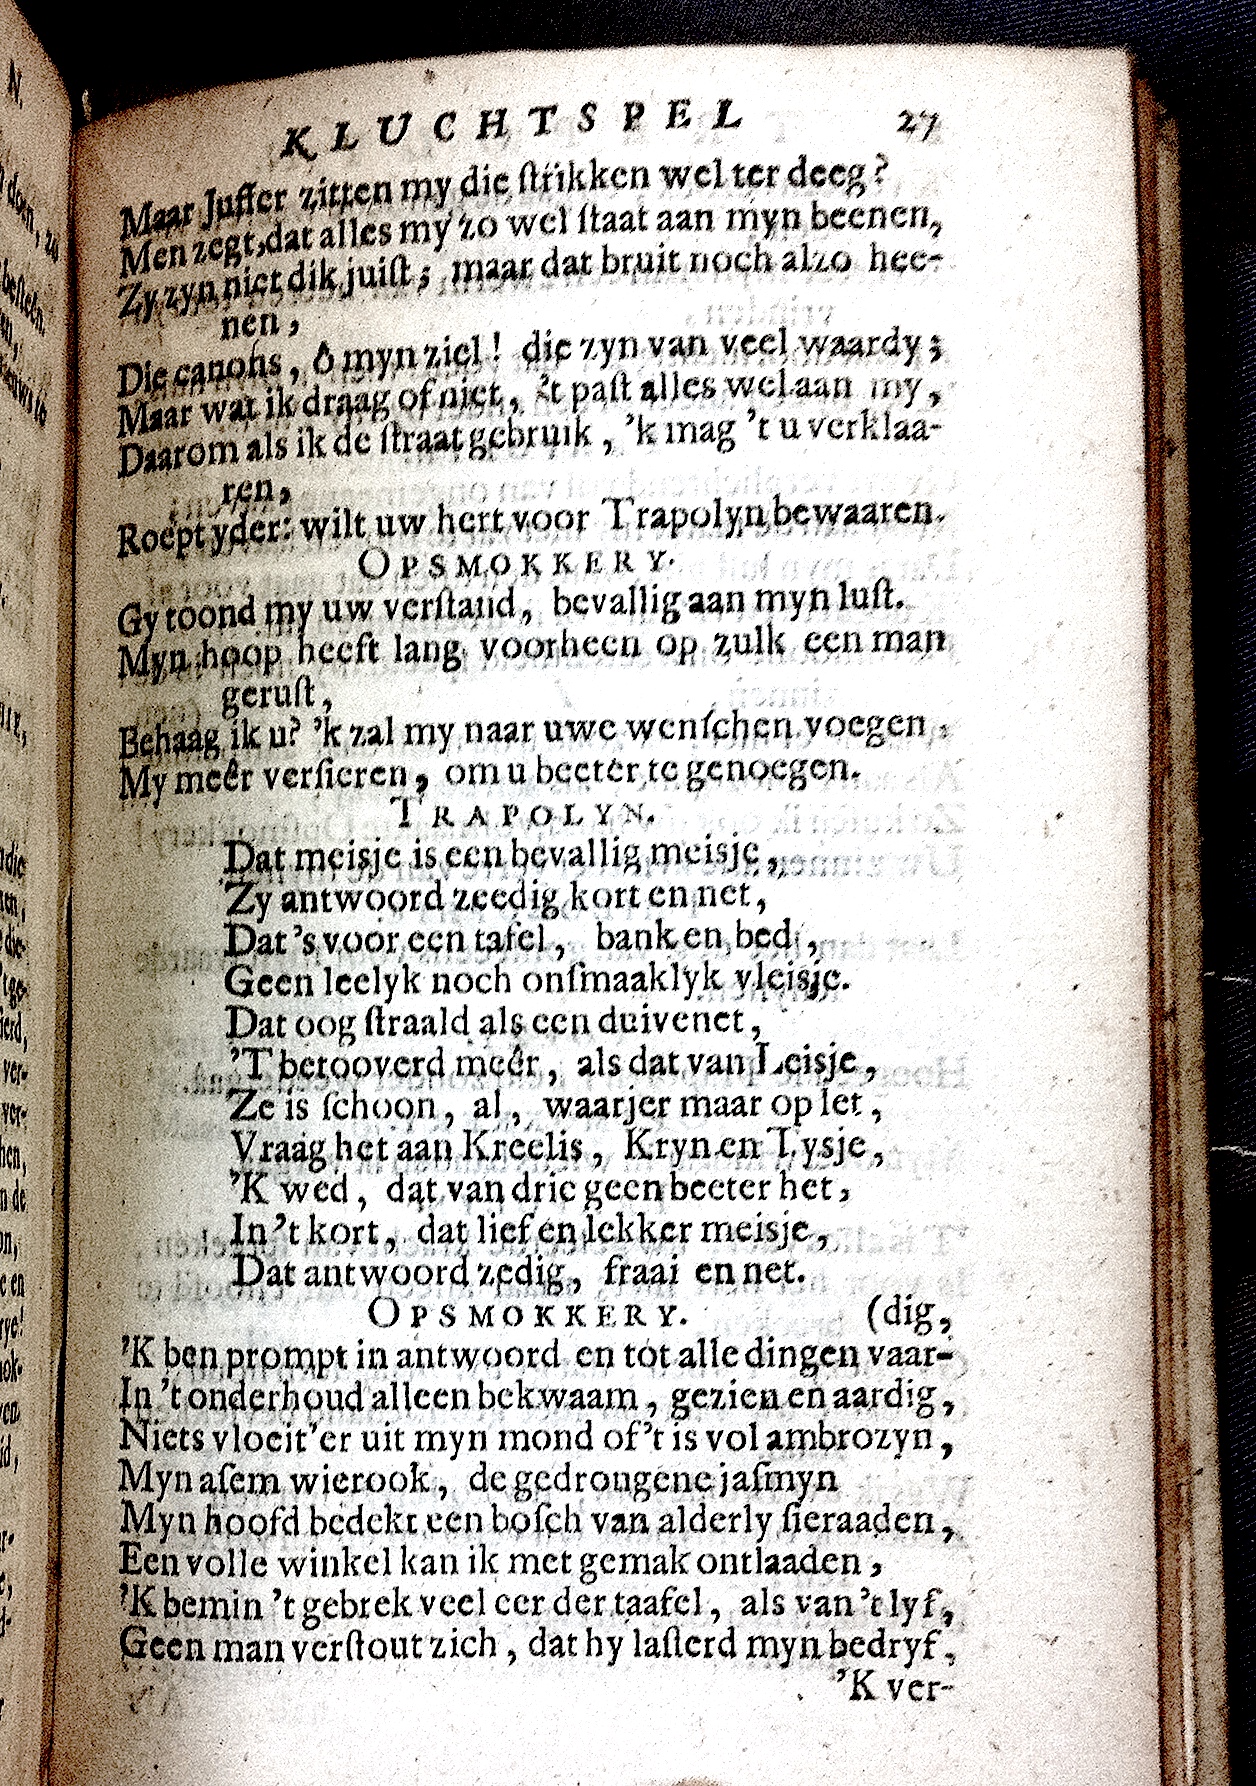 KLUCHTSPEL 27
Maar Juffer zitten my die ſtrikken wel ter deeg?
Men zegt, dat alles my zo wel ſtaat aan myn beenen,
Zy zyn niet dik juiſt; maar dat bruit noch alzo hee-
nen,
Die canons, ô myn ziel! die zyn van veel waardy;
Maar wat ik draag of niet, 't paſt alles wel aan my,
Daarom als ik de ſtraat gebruik, 'k mag 't u verklaa-
ren,
Roept yder: wilt uw hert voor Trapolyn bewaaren.
OPSMOKKERY.
Gy toond my uw verſtand, bevallig aan myn luſt.
Myn hoop heeft lang voorheen op zulk een man
geruſt,
Behaag ik u? 'k zal my naar uwe wenſchen voegen,
My meêr verſieren, om u beeter te genoegen.
TRAPOLYN.
Dat meisje is een bevallig meisje,
Zy antwoord zeedig kort en net,
Dat 's voor een tafel, bank en bed,
Geen leelyk noch onſmaaklyk vleisje.
Dat oog ſtraald als een duivenet,
'T betooverd meêr, als dat van Leisje,
Ze is ſchoon, al, waarjer maar op let,
Vraag het aan Kreelis, Kryn en Tysje,
'K wed, dat van drie geen beeter het,
In 't kort, dat lief en lekker meisje,
Dat antwoord zedig, fraai en net.
OPSMOKKERY. (dig,
'K ben prompt in antwoord en tot alle dingen vaar-
In 't onderhoud alleen bekwaam, gezien en aardig,
Niets vloeit'er uit myn mond of 't is vol ambrozyn,
Myn aſem wierook, de gedrongene jaſmyn
Myn hoofd bedekt een boſch van alderly ſieraaden,
Een volle winkel kan ik met gemak ontlaaden,
'K bemin 't gebrek veel eer der taafel, als van 't lyf,
Geen man verſtout zich, dat hy laſterd myn bedryf,
'K ver-